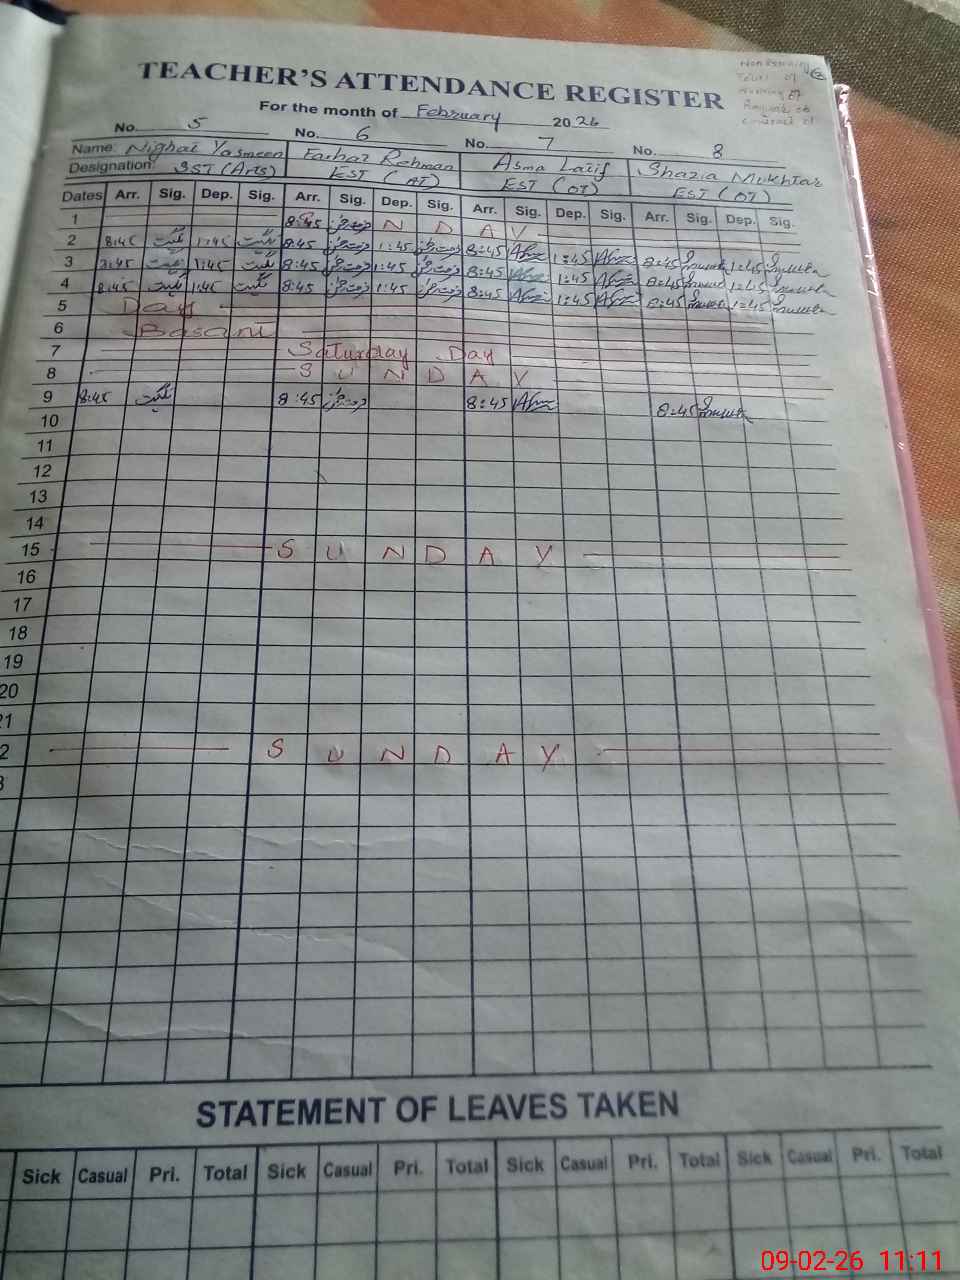 Non teaching
Total 07
Working 07
Regular 06
Contract 01
TEACHER'S ATTENDANCE REGISTER
For the month of February 2026
No. 5 No. 6 No. 7 No. 8
Name: Nighat Yasmeen Farhat Rehman Asma Latif Shazia Mukhtar
Designation: SST (Arts) EST (AT) EST (OT) EST (OT)
Dates Arr. Sig. Dep. Sig. Arr. Sig. Dep. Sig. Arr. Sig. Dep. Sig. Arr. Sig. Dep. Sig.
1 8:45 N D A Y
2 8:45 نگہت 1:45 نگہت 8:45 1:45 8:45 1:45 8:45 1:45
3 8:45 نگہت 1:45 نگہت 8:45 1:45 8:45 1:45 8:45 1:45
4 8:45 نگہت 1:45 نگہت 8:45 1:45 8:45 1:45 8:45 1:45
5 Day
6 Basant
7 Saturday Day
8 S U N D A Y
9 8:45 نگہت 8:45 8:45 8:45
10
11
12
13
14
15 S U N D A Y
16
17
18
19
20
21
2 S U N D A Y
3
STATEMENT OF LEAVES TAKEN
Sick Casual Pri. Total Sick Casual Pri. Total Sick Casual Pri. Total Sick Casual Pri. Total
09-02-26 11:11